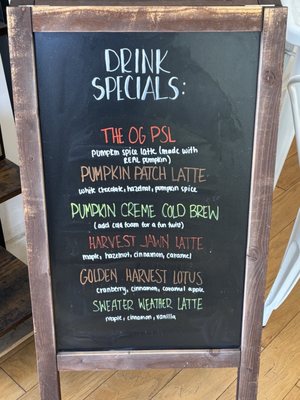 DRINK
SPECIALS:
THE OG PSL
pumpkin spice latte (made with
REAL pumpkin)
PUMPKIN PATCH LATTE
white chocolate, hazelnut, pumpkin spice
PUMPKIN CREME COLD BREW
(add cold foam for a fun twist)
HARVEST JAWN LATTE
maple, hazelnut, cinnamon, caramel
GOLDEN HARVEST LOTUS
cranberry, cinnamon, caramel apple
SWEATER WEATHER LATTE
maple, cinnamon, vanilla